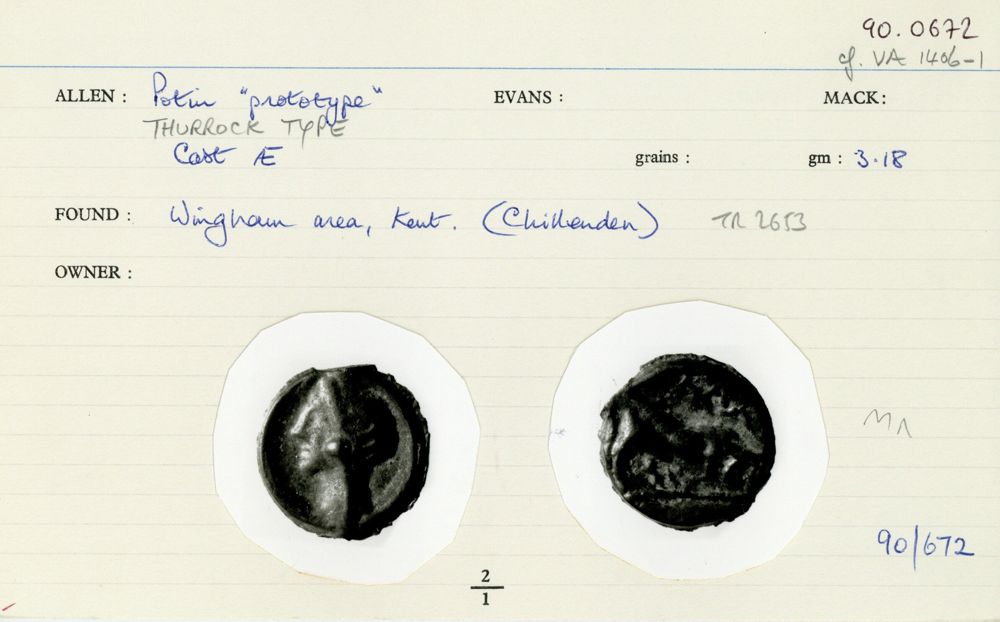 90.0672
cf. VA 1406-1
ALLEN : Potin "prototype" EVANS : MACK:
THURROCK TYPE
Cast Æ grains : gm : 3.18
FOUND : Wingham area, Kent. (Chillenden) TR 2653
OWNER :
90/672
2
1